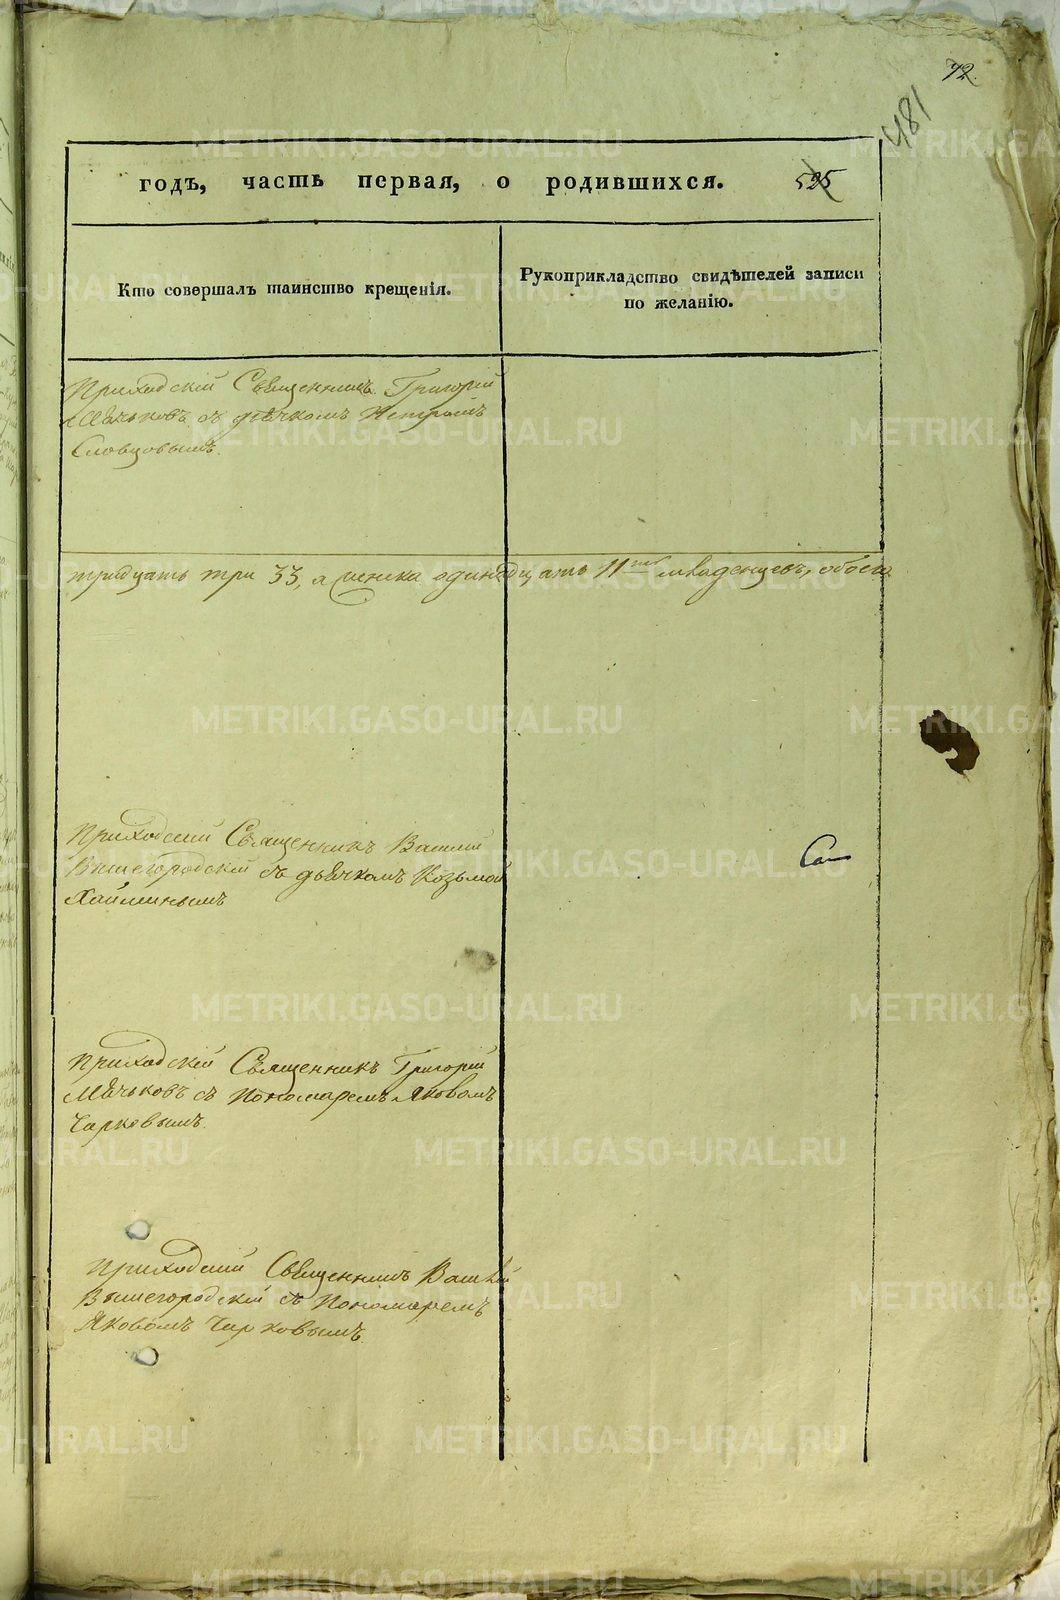 72.
481
годъ, часть первая, о родившихся. 525
Кто совершалъ таинство крещенія.
Рукоприкладство свидѣтелей записи
по желанію.
Приходскій Священникъ Григорій
Мѣчьковъ съ дьячкомъ Петромъ
Словцовымъ.
тридцать три 33, а женска одинадцать 11ть младенцевъ, обоего
Приходский Священникъ Василій
Вышегородскій съ дьячкомъ Козьмой
Хайминымъ
Приходскій Священникъ Григорій
Мѣчьковъ съ Пономаремъ Яковомъ
Чирковымъ.
Приходский Священникъ Василий
Вышегородскій съ Пономаремъ
Яковомъ Чирковымъ.
METRIKI.GASO-URAL.RU